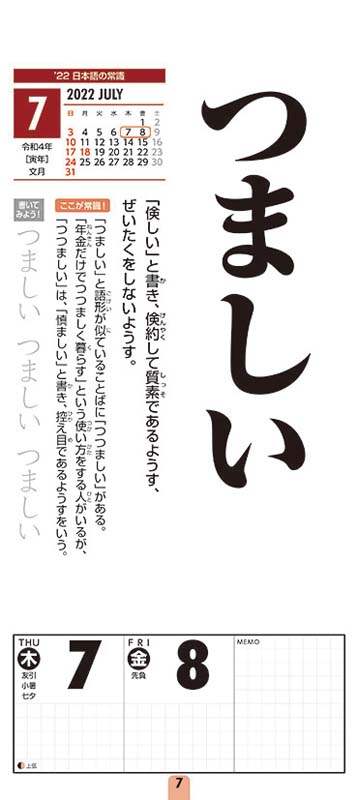 '22 日本語の常識
7
令和4年
[寅年]
文月
2022 JULY
日 月 火 水 木 金 土
1 2
3 4 5 6 7 8 9
10 11 12 13 14 15 16
17 18 19 20 21 22 23
24 25 26 27 28 29 30
31
つましい
「倹しい」と書き、倹約して質素であるようす、
ぜいたくをしないようす。
ここが常識!
「つましい」と語形が似ていることばに「つつましい」がある。
「年金だけでつつましく暮らす」という使い方をする人がいるが、
「つつましい」は、「慎ましい」と書き、控え目であるようすをいう。
書いてみよう!
つましい つましい つましい
THU
木
7
友引
小暑
七夕
上弦
FRI
金
8
先負
MEMO
7